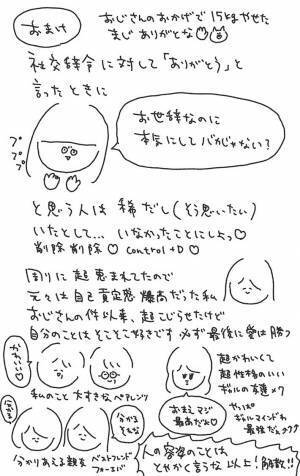 おまけ
おじさんのおかげで15kgやせた
まじありがとな
社交辞令に対して「ありがとう」と
言ったときに
お世辞なのに
本気にしてバカじゃない?
ププププ
と思う人は稀だし(そう思いたい)
いたとして… いなかったことにしよっ♡
削除削除♡ control+D♡
周りに超恵まれてたので
元々は自己肯定感爆高だった私
おじさんの件以来、超こじらせたけど
自分のことはそこそこ好きです 必ず最後に愛は勝つ
かわいい♡
私のこと大すきなペアレンツ
分かる
分かる
そんな
分かりあえる親友
ベストフレンド
フォーエバー
おまえマジ
最高だよ♡
超かわいくて
超性格のいい
ギャルの友達メク
やっぱ
ギャルマインドわ
最強だょ
人の容姿のことは
とやかく言うな以上!解散!!